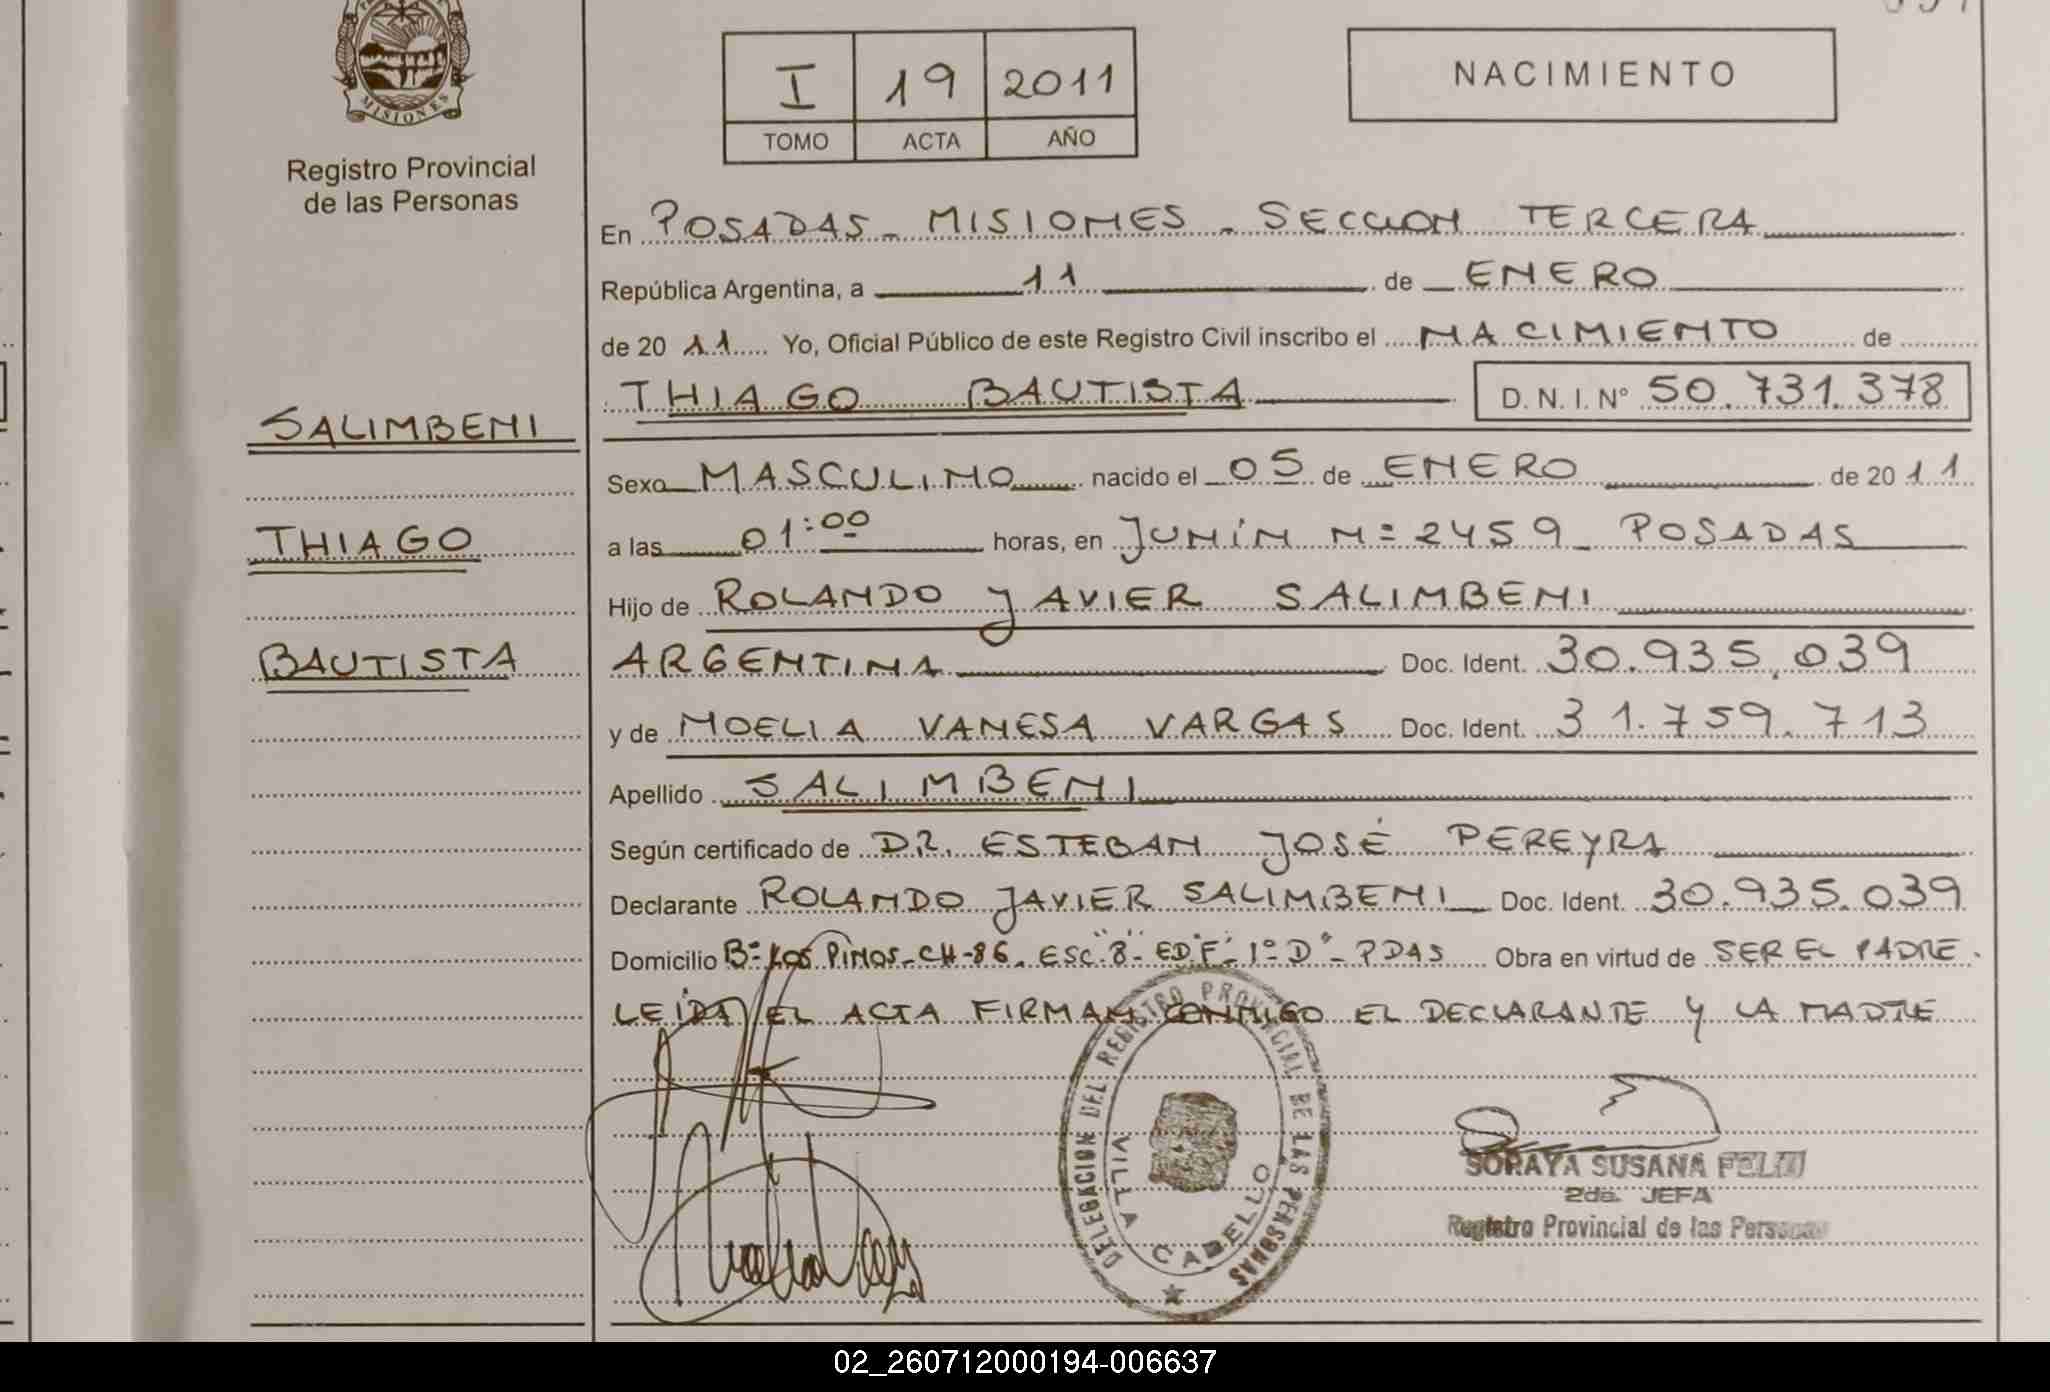 MISIONES
Registro Provincial
de las Personas
I 19 2011
TOMO ACTA AÑO
NACIMIENTO
En POSADAS - MISIONES - SECCION TERCERA
República Argentina, a 11 de ENERO
de 20 11 Yo, Oficial Público de este Registro Civil inscribo el NACIMIENTO de
THIAGO BAUTISTA D. N. I. N° 50.731.378
SALIMBENI
THIAGO
BAUTISTA
Sexo MASCULINO nacido el 05 de ENERO de 2011
a las 01:00 horas, en JUNÍN N= 2459 - POSADAS
Hijo de ROLANDO JAVIER SALIMBENI
ARGENTINA Doc. Ident. 30.935.039
y de NOELIA VANESA VARGAS Doc. Ident. 31.759.713
Apellido SALIMBENI
Según certificado de DR. ESTEBAN JOSÉ PEREYRA
Declarante ROLANDO JAVIER SALIMBENI Doc. Ident. 30.935.039
Domicilio B= LOS PINOS - CH-86. ESC."8"- ED"F"- 1° D" - PDAS Obra en virtud de SER EL PADRE.
LEÍDA EL ACTA FIRMAN CONMIGO EL DECLARANTE Y LA MADRE
DELEGACION DEL REGISTRO PROVINCIAL DE LAS PERSONAS
VILLA CABELLO
SORAYA SUSANA
2da. JEFA
Registro Provincial de las Personas
02_260712000194-006637